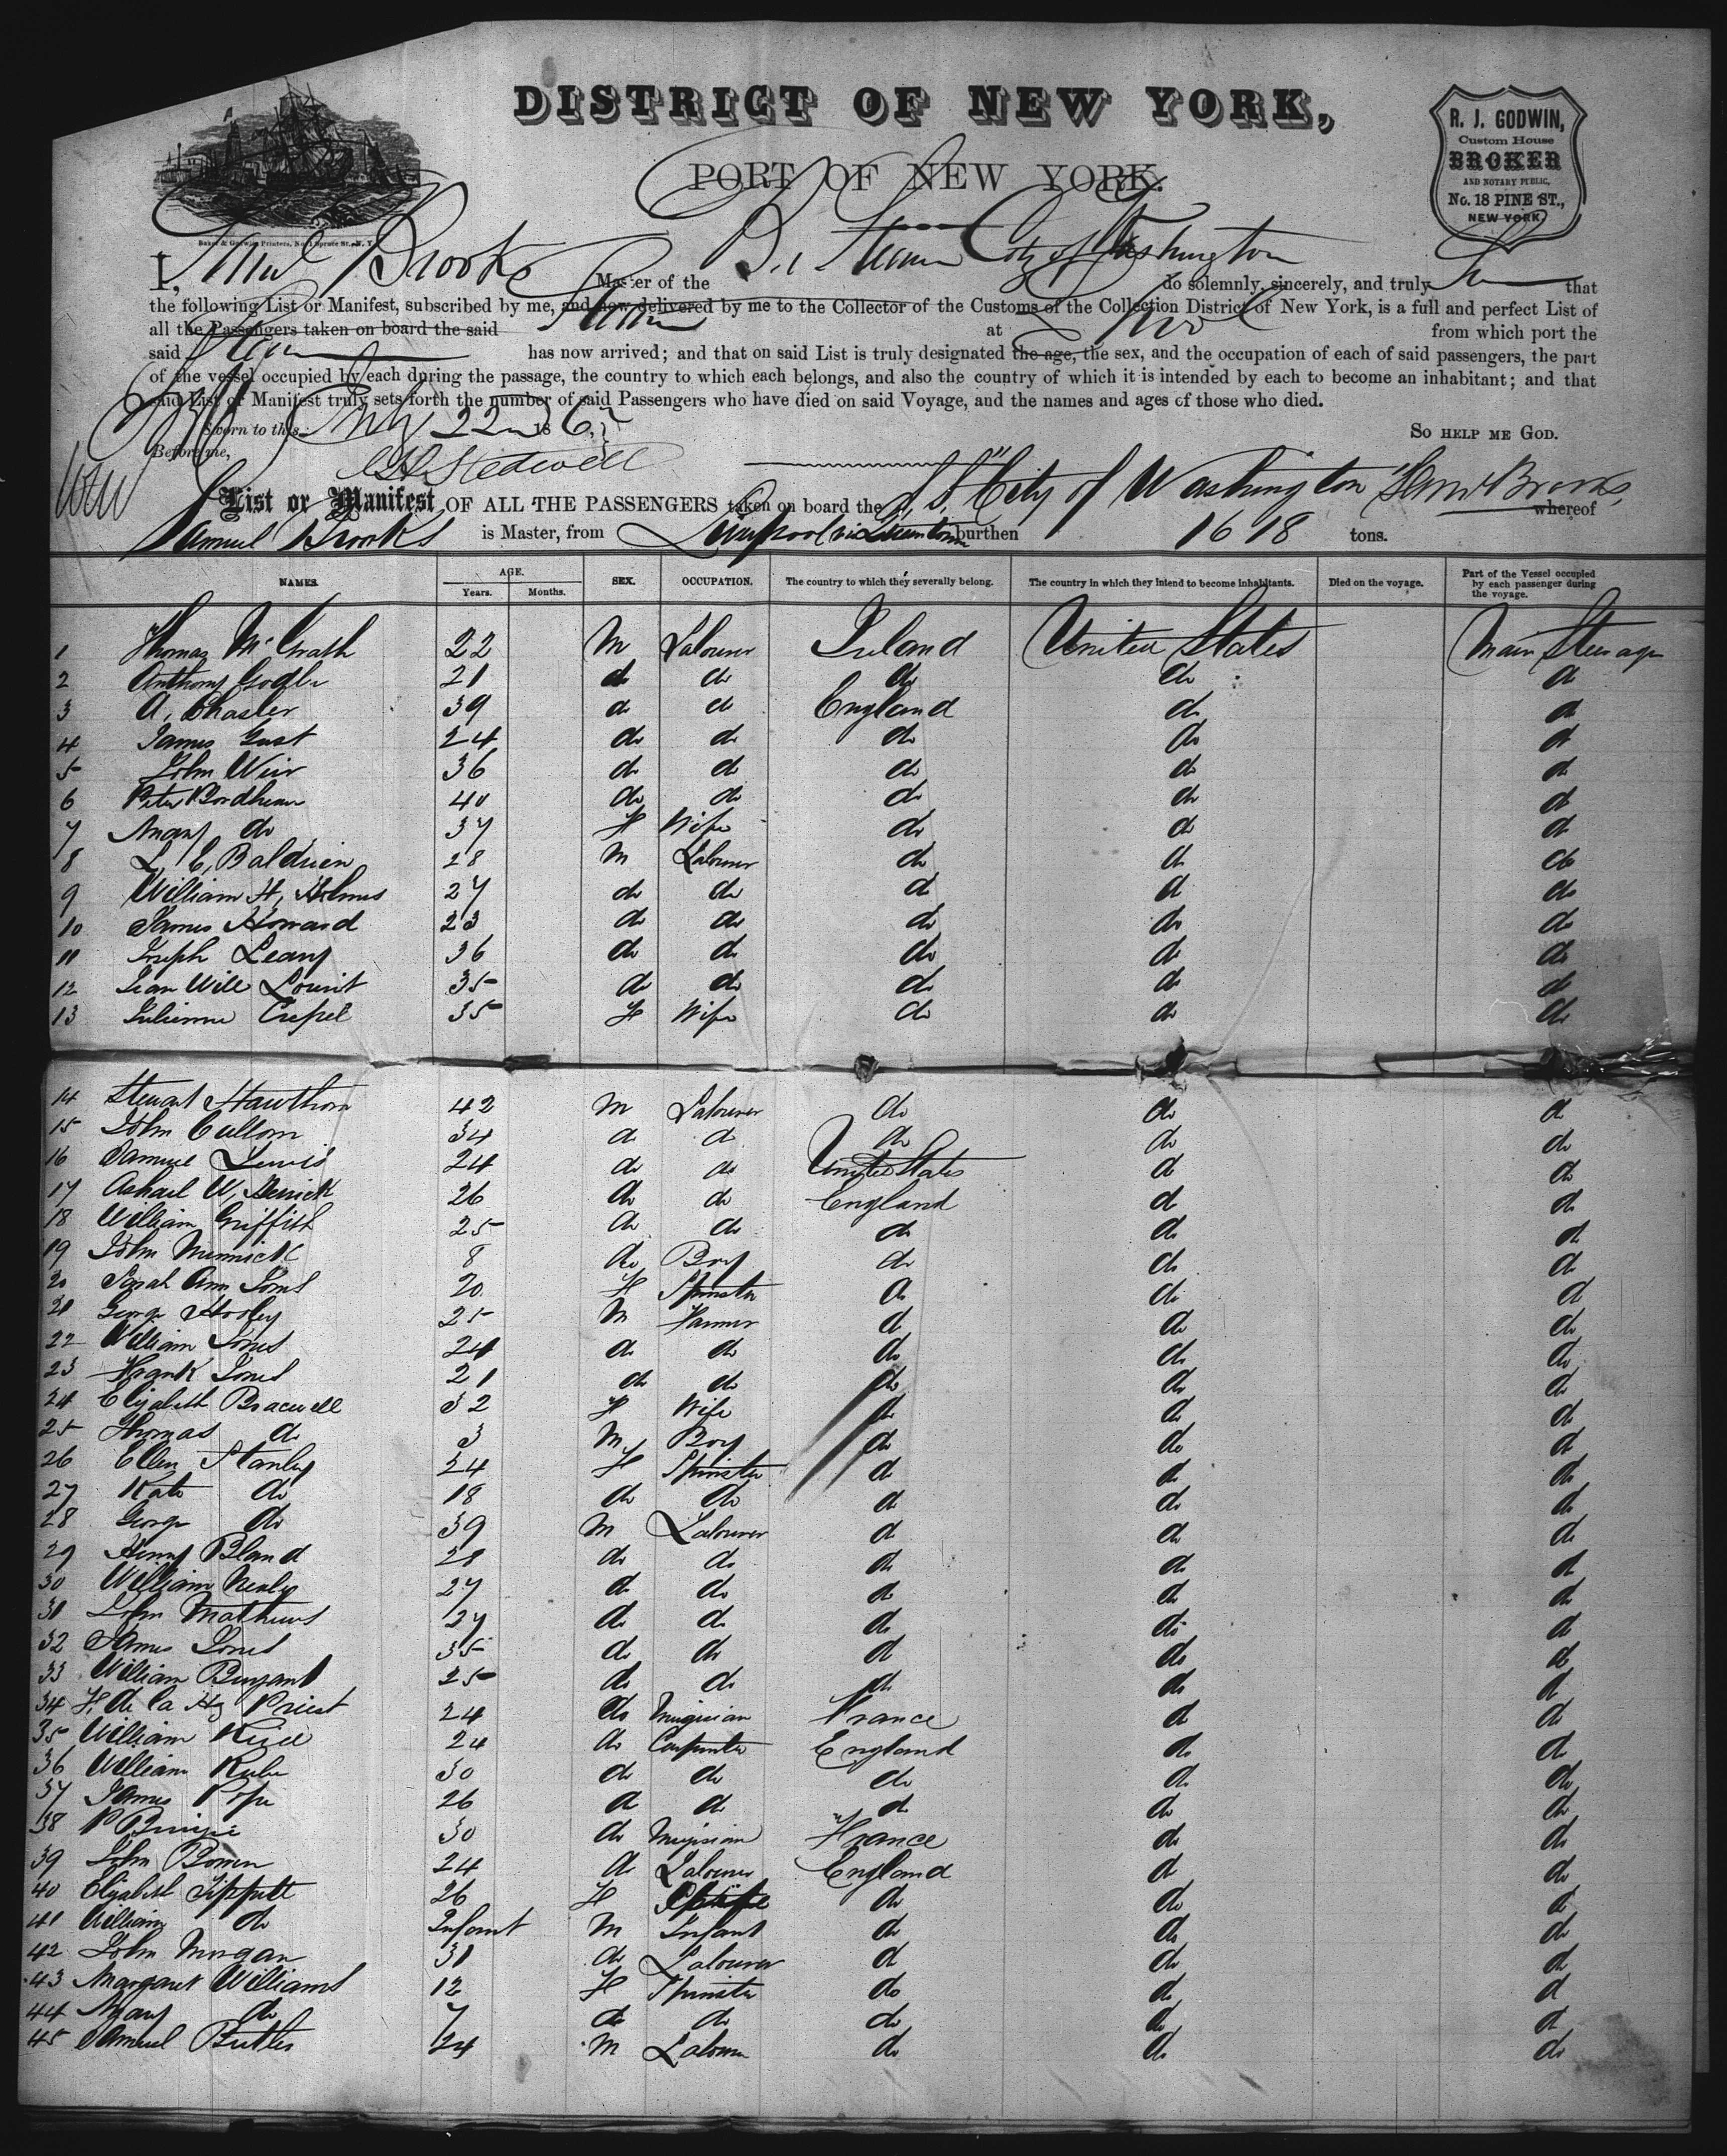 DISTRICT OF NEW YORK,
PORT OF NEW YORK.
R. J. GODWIN,
Custom House
BROKER
AND NOTARY PUBLIC,
No. 18 PINE ST.,
NEW YORK.
Baker & Godwin Printers, No. 1 Spruce St., N. Y.
I, Saml Brooks Master of the Br Steam City of Washington do solemnly, sincerely, and truly that
the following List or Manifest, subscribed by me, and now delivered by me to the Collector of the Customs of the Collection District of New York, is a full and perfect List of
all the Passengers taken on board the said Steamer at L'pool from which port the
said Steamer has now arrived; and that on said List is truly designated the age, the sex, and the occupation of each of said passengers, the part
of the vessel occupied by each during the passage, the country to which each belongs, and also the country of which it is intended by each to become an inhabitant; and that
said List or Manifest truly sets forth the number of said Passengers who have died on said Voyage, and the names and ages of those who died.
Sworn to this July 22 186 SO HELP ME GOD.
Before me,
List or Manifest OF ALL THE PASSENGERS taken on board the S.S. "City of Washington" Saml Brooks whereof
Samuel Brooks is Master, from Liverpool via Queenstown burthen 1618 tons.
NAMES. AGE. Years. Months. SEX. OCCUPATION. The country to which they severally belong. The country in which they intend to become inhabitants. Died on the voyage. Part of the Vessel occupied by each passenger during the voyage.
1 Thomas McGrath 22 M Labourer Ireland United States Main Steerage
2 Anthony 21 do do do do do
3 A, Chasler 39 do do England do do
4 James Gust 24 do do do do do
5 John Weir 36 do do do do do
6 Peter Bordheim 40 do do do do do
7 Mary do 37 F Wife do do do
8 L, C, Baldwin 28 M Labourer do do do
9 William H, Holmes 27 do do do do do
10 James Howard 23 do do do do do
11 Joseph Leary 36 do do do do do
12 Jean Will 35 do do do do do
13 Julienne Crepel 35 F Wife do do do
14 Stewart Hawthorn 42 M Labourer do do do
15 John Cullom 34 do do do do do
16 Samuel Lewis 24 do do United States do do
17 W, 26 do do England do do
18 William Griffith 25 do do do do do
19 John Minnick 8 do Boy do do do
20 Sarah Ann Jones 20 F Spinster do do do
21 George Hooley 25 M Farmer do do do
22 William Jones 24 do do do do do
23 Frank Jones 21 do do do do do
24 Elizabeth Bracewell 32 F Wife do do do
25 Thomas do 3 M Boy do do do
26 Ellen Stanley 24 F Spinster do do do
27 Kate do 18 do do do do do
28 George do 39 M Labourer do do do
29 Henry Bland 28 do do do do do
30 William Nealy 27 do do do do do
31 John Mathews 27 do do do do do
32 James Jones 35 do do do do do
33 William Bunyant 25 do do do do do
34 H. de la Priest 24 do Musician France do do
35 William 24 do Carpenter England do do
36 William 30 do do do do do
37 James Pope 26 do do do do do
38 P 30 do Musician France do do
39 John Bowen 24 do Labourer England do do
40 Elizabeth Tippett 26 F do do do
41 William do Infant M Infant do do do
42 John Morgan 31 do Labourer do do do
43 Margaret Williams 12 F Spinster do do do
44 Mary do 7 do do do do do
45 Samuel Butler 24 M Labourer do do do